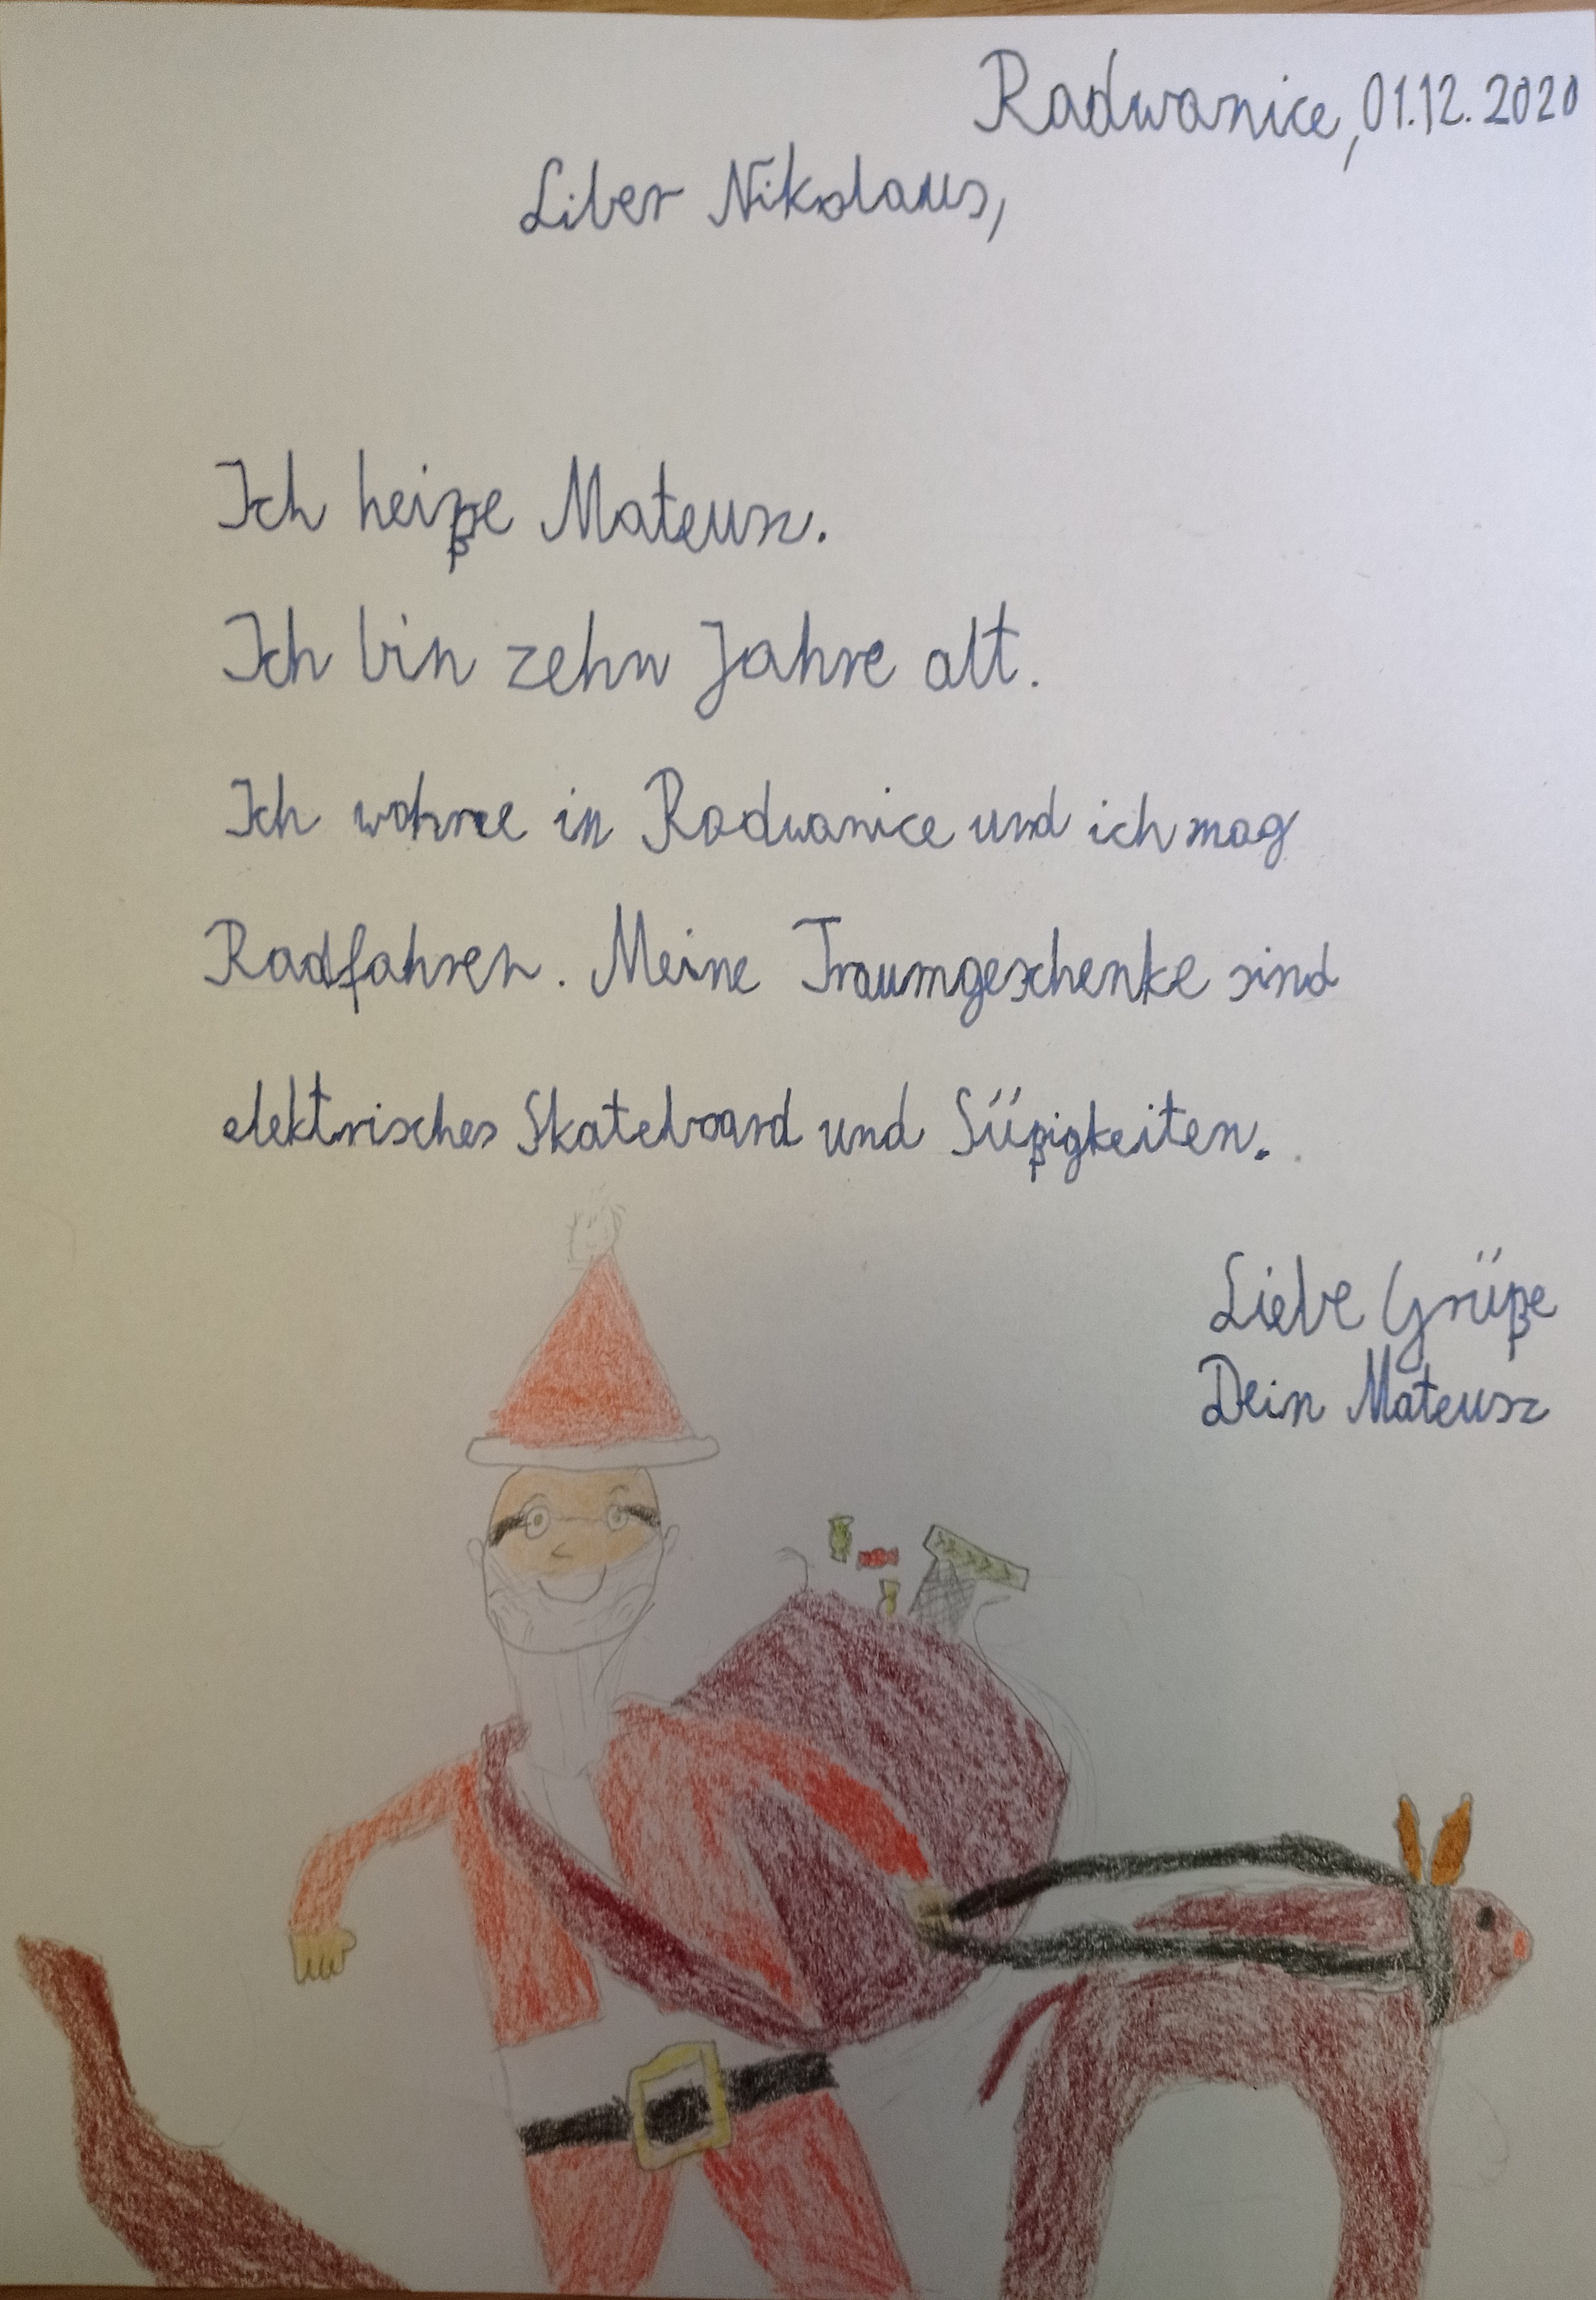 Radwanice, 01.12.2020
Liber Nikolaus,
Ich heiße Mateusz.
Ich bin zehn Jahre alt.
Ich wohne in Radwanice und ich mag
Radfahren. Meine Traumgeschenke sind
elektrisches Skateboard und Süßigkeiten.
Liebe Grüße
Dein Mateusz